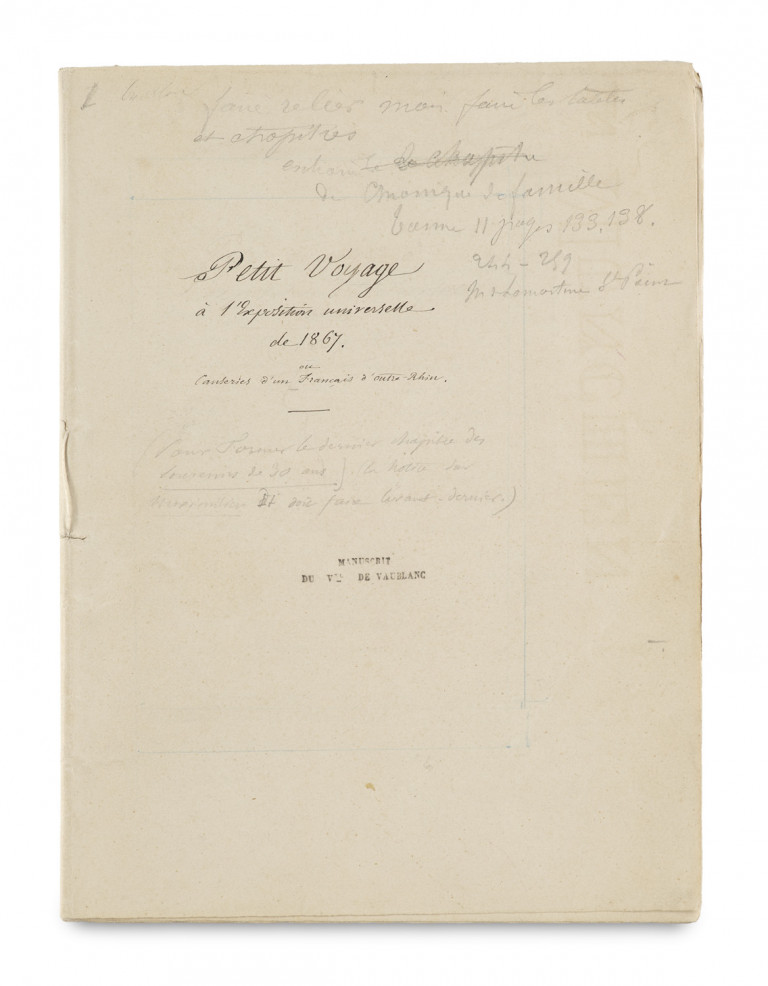 faire relier mais faire les tables
et chapitres
de Chronique de famille
Tome 11 pages 133, 138.
244 - 259
Petit Voyage
à l'Exposition universelle
de 1867.
ou
Causeries d'un Français d'outre-Rhin.
(Pour former le dernier chapitre des
souvenirs de 30 ans). (la notice sur
Maximilien II doit faire l'avant-dernier.)
MANUSCRIT
DU Vte DE VAUBLANC